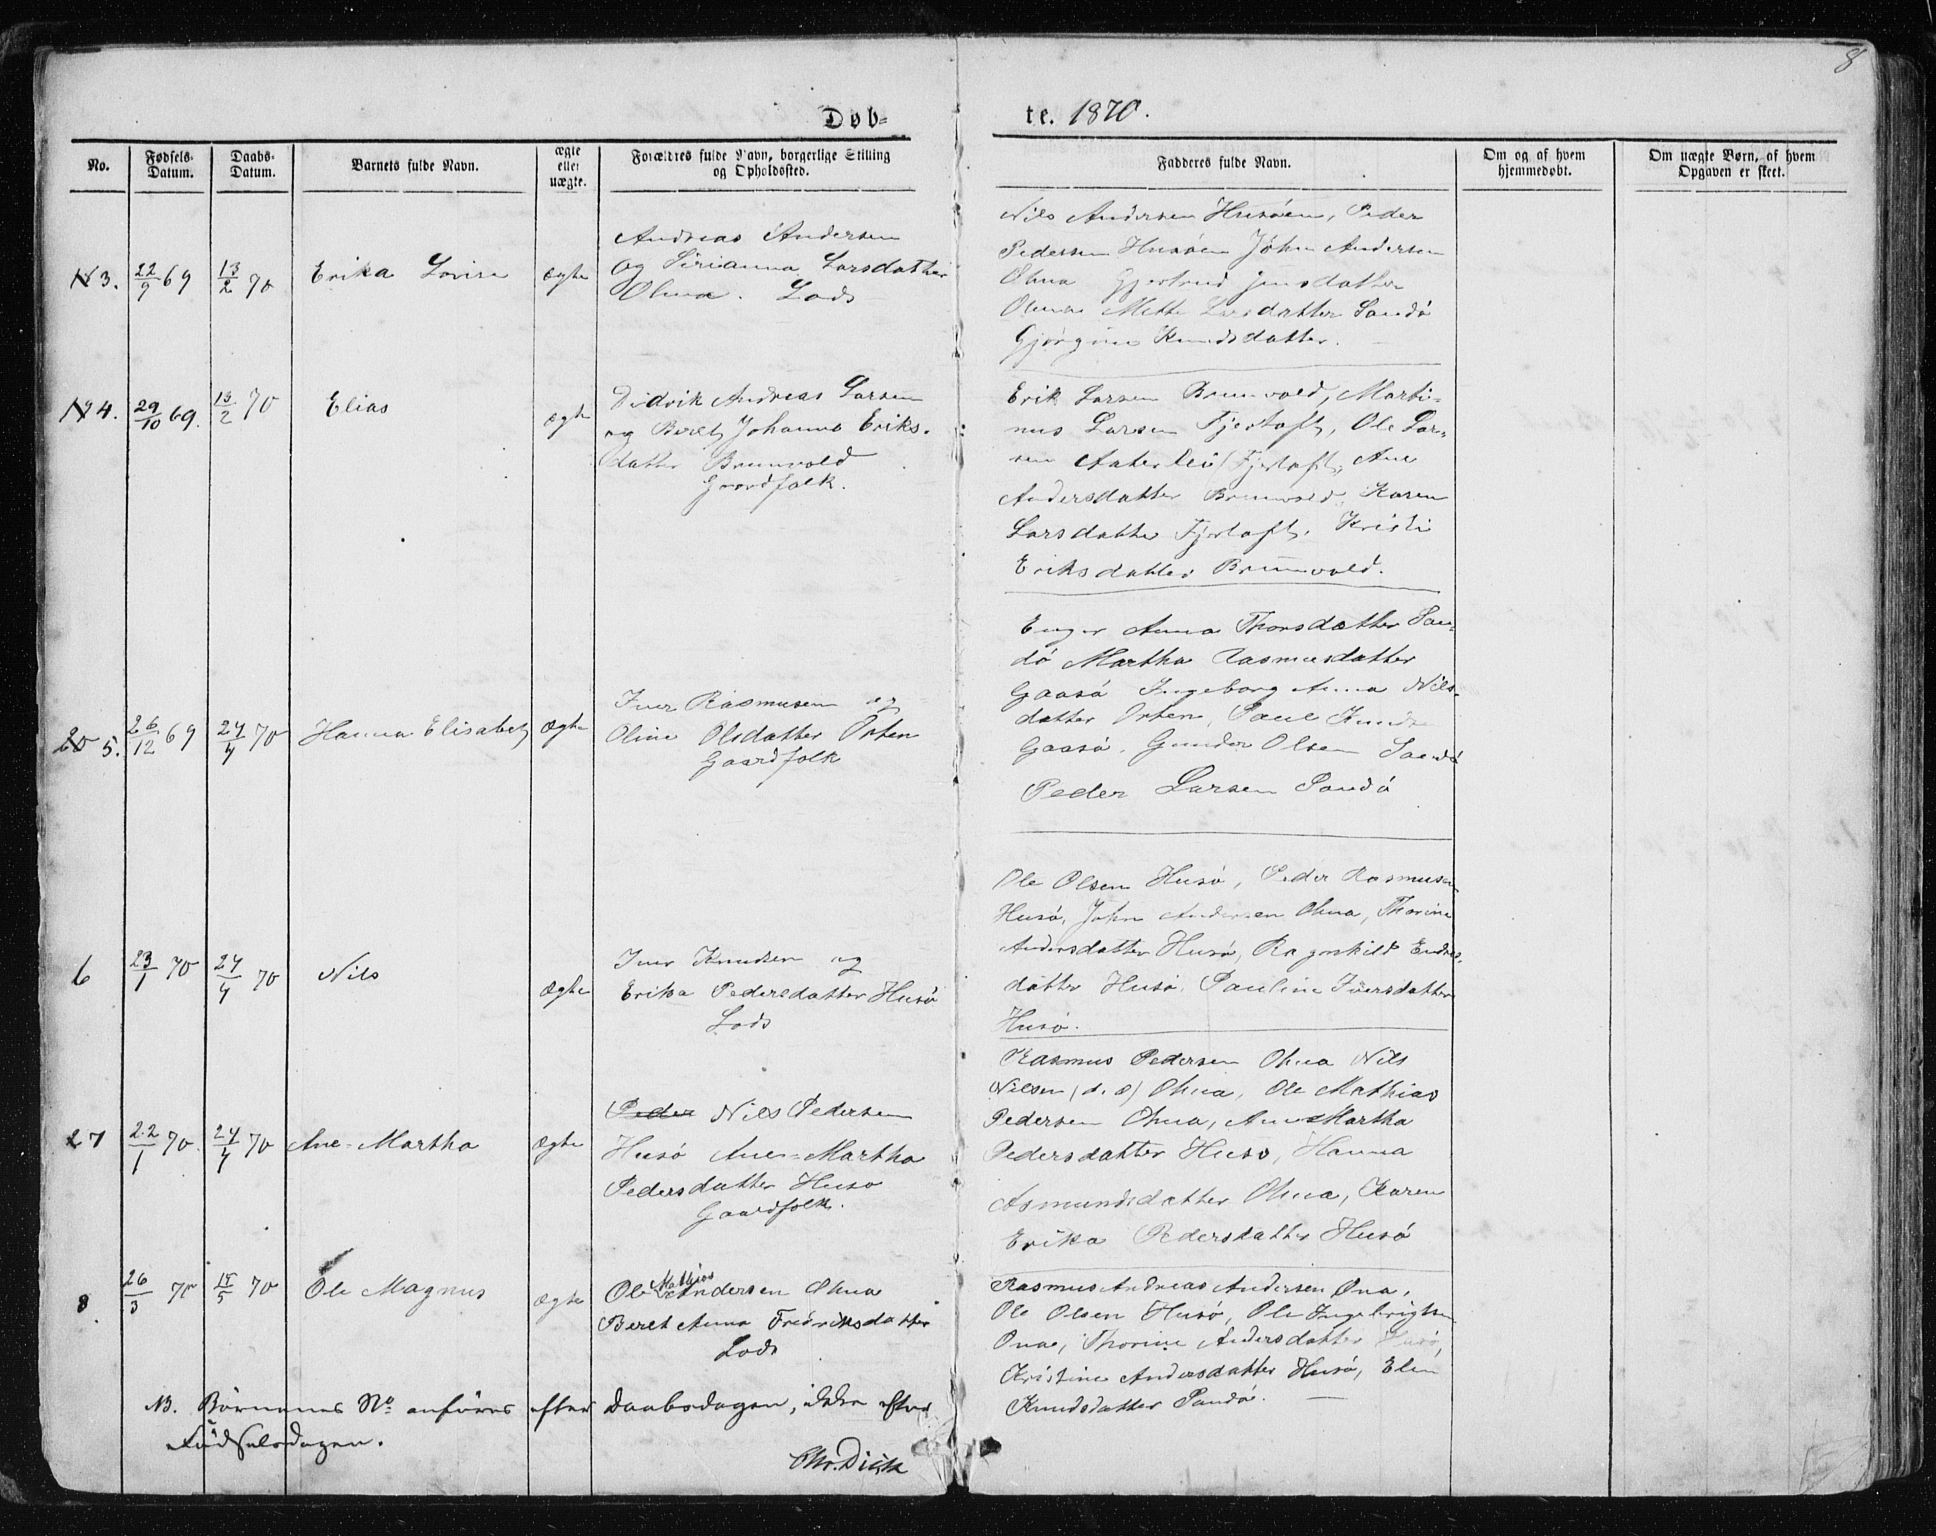 8
Døb-
te. 1870.
No.
Fødsels-
Datum.
Daabs-
Datum.
Barnets fulde Navn.
ægte
eller
uægte.
Forældres fulde Navn, borgerlige Stilling
og Opholdssted.
Fadderes fulde Navn.
Om og af hvem
hjemmedøbt.
Om uægte Børn, af hvem
Opgaven er skeet.
3. 22/9 69 13/2 70 Erika Lovise ægte
Andreas Andersen
og Sirianna Larsdatter
Ohna. Lods
Nils Andersen Husøen, Peder
Pedersen Husøen John Andersen
Ohna Gjertrud Jensdatter
Ohna Mette Larsdatter Sandø
Gjørgine Knudsdatter.
4. 29/10 69. 13/2 70 Elias ægte
Didrik Andreas Larsen
og Beret Johanna Eriks-
datter Brunvold
Gaardfolk.
Erik Larsen Brunvold, Marti-
nus Larsen Fjertoft, Ole Lar-
sen Fjertoft, Ane
Andersdatter Brunvold, Karen
Larsdatter Fjertoft, Kristi
Eriksdatter Brunvold.
5. 26/12 69 24/4 70 Hanna Elisabet ægte
Iver Rasmusen og
Oline Olsdatter Orten
Gaardfolk
Anna Thorsdatter San-
dø Martha Rasmusdatter
Gaasø Ingeborg Anna Nils-
datter Orten, Paul Knuds
Gaasø, Gunder Olsen Sandø
Peder Larsen Sandø
6 23/1 70 24/4 70 Nils ægte
Iver Knudsen og
Erika Pedersdatter Husø
Lods
Ole Olsen Husø, Peder Rasmusen
Husø, John Andersen Ohna, Thorine
Andersdatter Husø, Ragnhild Endres-
datter Husø, Pauline Iversdatter
Husø.
7 22/1 70 24/4 70 Ane-Martha ægte
Peder Nils Pedersen
Husø Ane-Martha
Pedersdatter Husø
Gaardfolk.
Rasmus Pedersen Ohna Nils
Nilsen (d. æ) Ohna, Ole Mathias
Pedersen Ohna, Ane Martha
Pedersdatter Husø, Hanna
Asmundsdatter Ohna, Karen
Erika Pedersdatter Husø
8 26/3 70 15/5 70 Ole Magnus ægte
Ole Mathias Andersen Ohna
Beret Anna Fredriksdatter
Lods
Rasmus Andreas Andersen Ona,
Ole Olsen Husø, Ole Ingebrigtsen
Ona, Thorine Andersdatter Husø,
Kristine Andersdatter Husø, Elen
Knudsdatter Sandø.
NB. Børnenes No anføres efter Daabsdagen, ikke efter
Fødselsdagen.
Chr. Dick